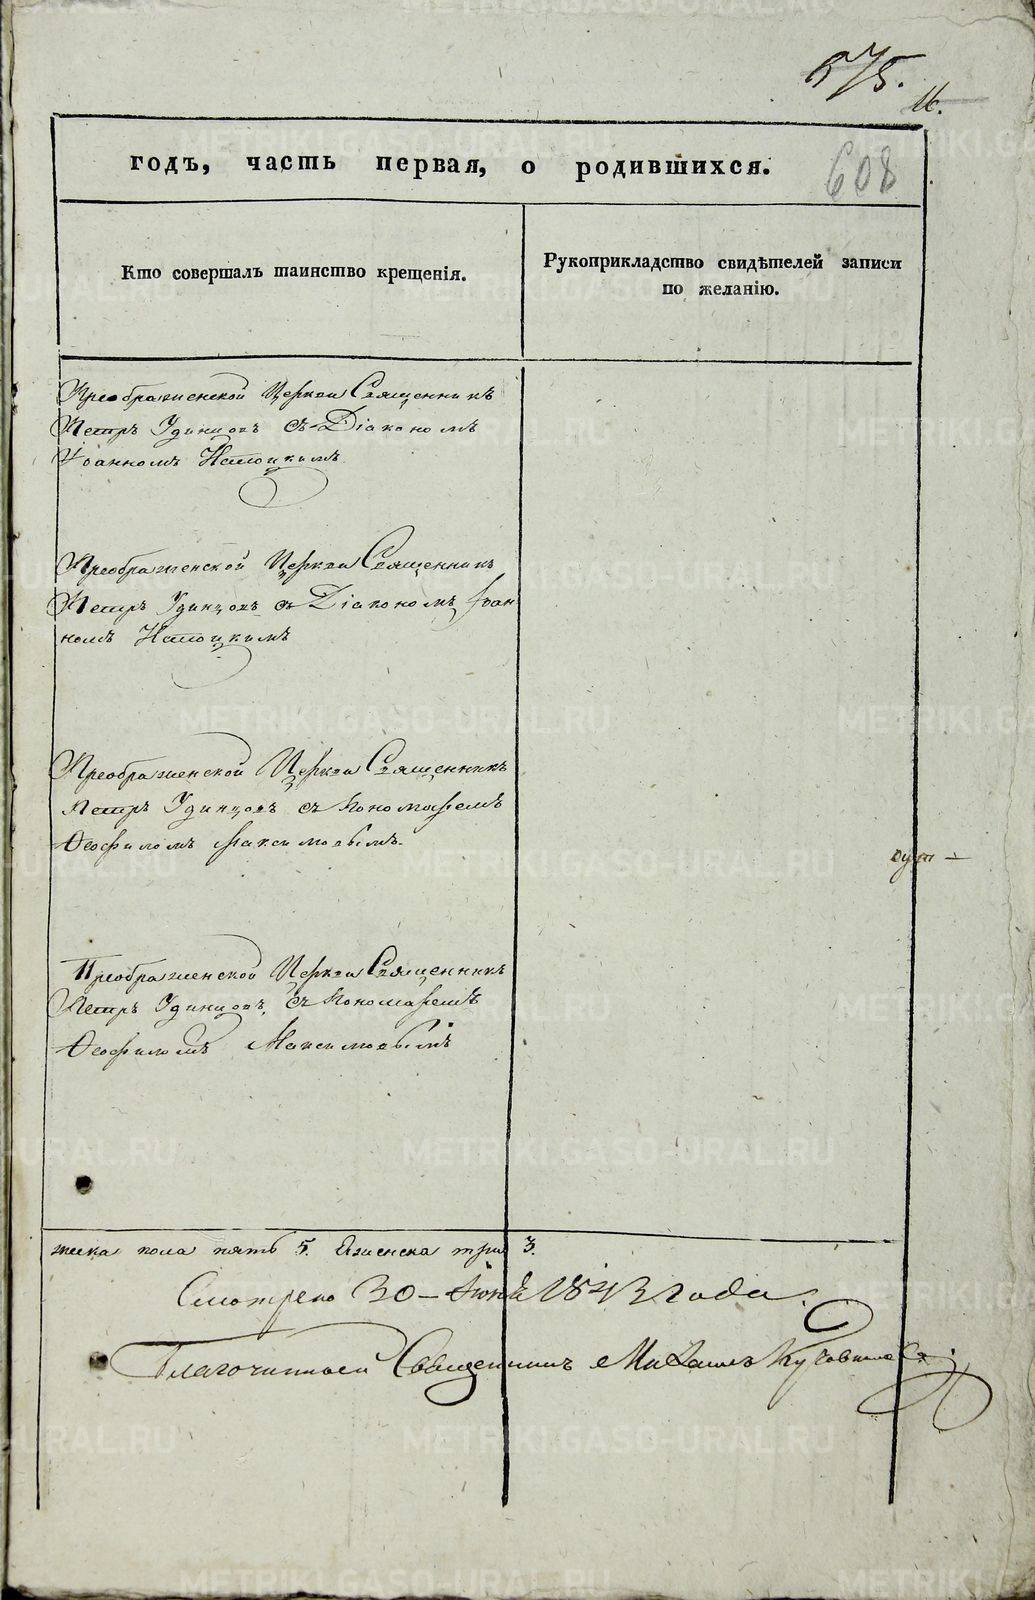 575.
16.
годъ, часть первая, о родившихся.
608
Кто совершалъ таинство крещенія.
Рукоприкладство свидѣтелей записи
по желанію.
Преображенской Церкви Священникъ
Петръ Удинцовъ съ Діакономъ
Іоанномъ
Преображенской Церкви Священникъ
Петръ Удинцовъ съ Діакономъ Іоан
номъ
Преображенской Церкви Священникъ
Петръ Удинцовъ съ Пономаремъ
Ѳеофиломъ Максимовымъ.
Преображенской Церкви Священникъ
Петръ Удинцовъ, съ Пономаремъ
Ѳеофиломъ Максимовымъ
жеска пола пять 5. Женска три 3.
Смотрено 30 Іюня 1843 года.
Благочинный Священникъ Михаилъ
METRIKI.GASO-URAL.RU